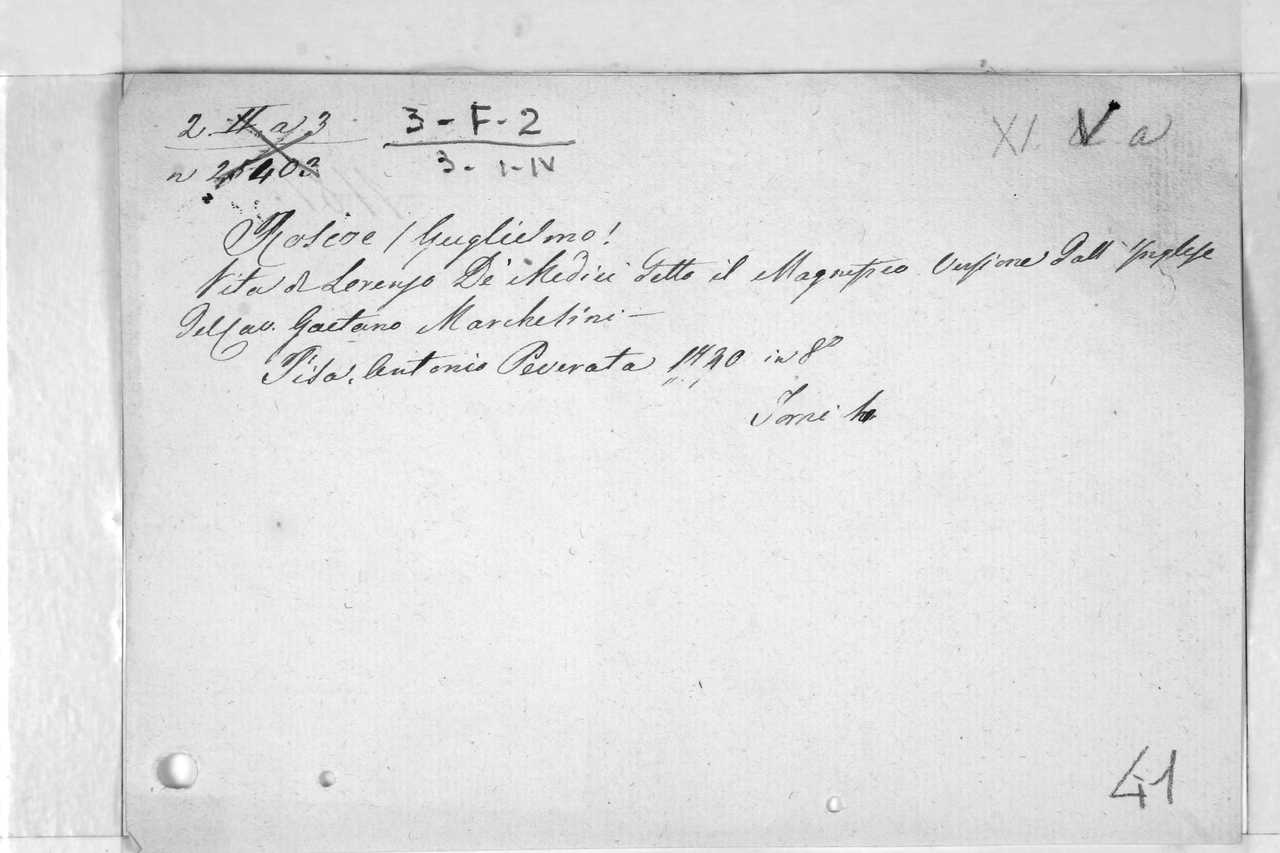 2. II. a 3
n 25403
3 - F - 2
3 - I - IV
XI. V. a
Roscoe / Guglielmo /
Vita di Lorenzo De' Medici detto il Magnifico Versione dall' Inglese
del Cav. Gaetano Mecherini —
Pisa, Antonio Peverata in 8°
Tomi
41